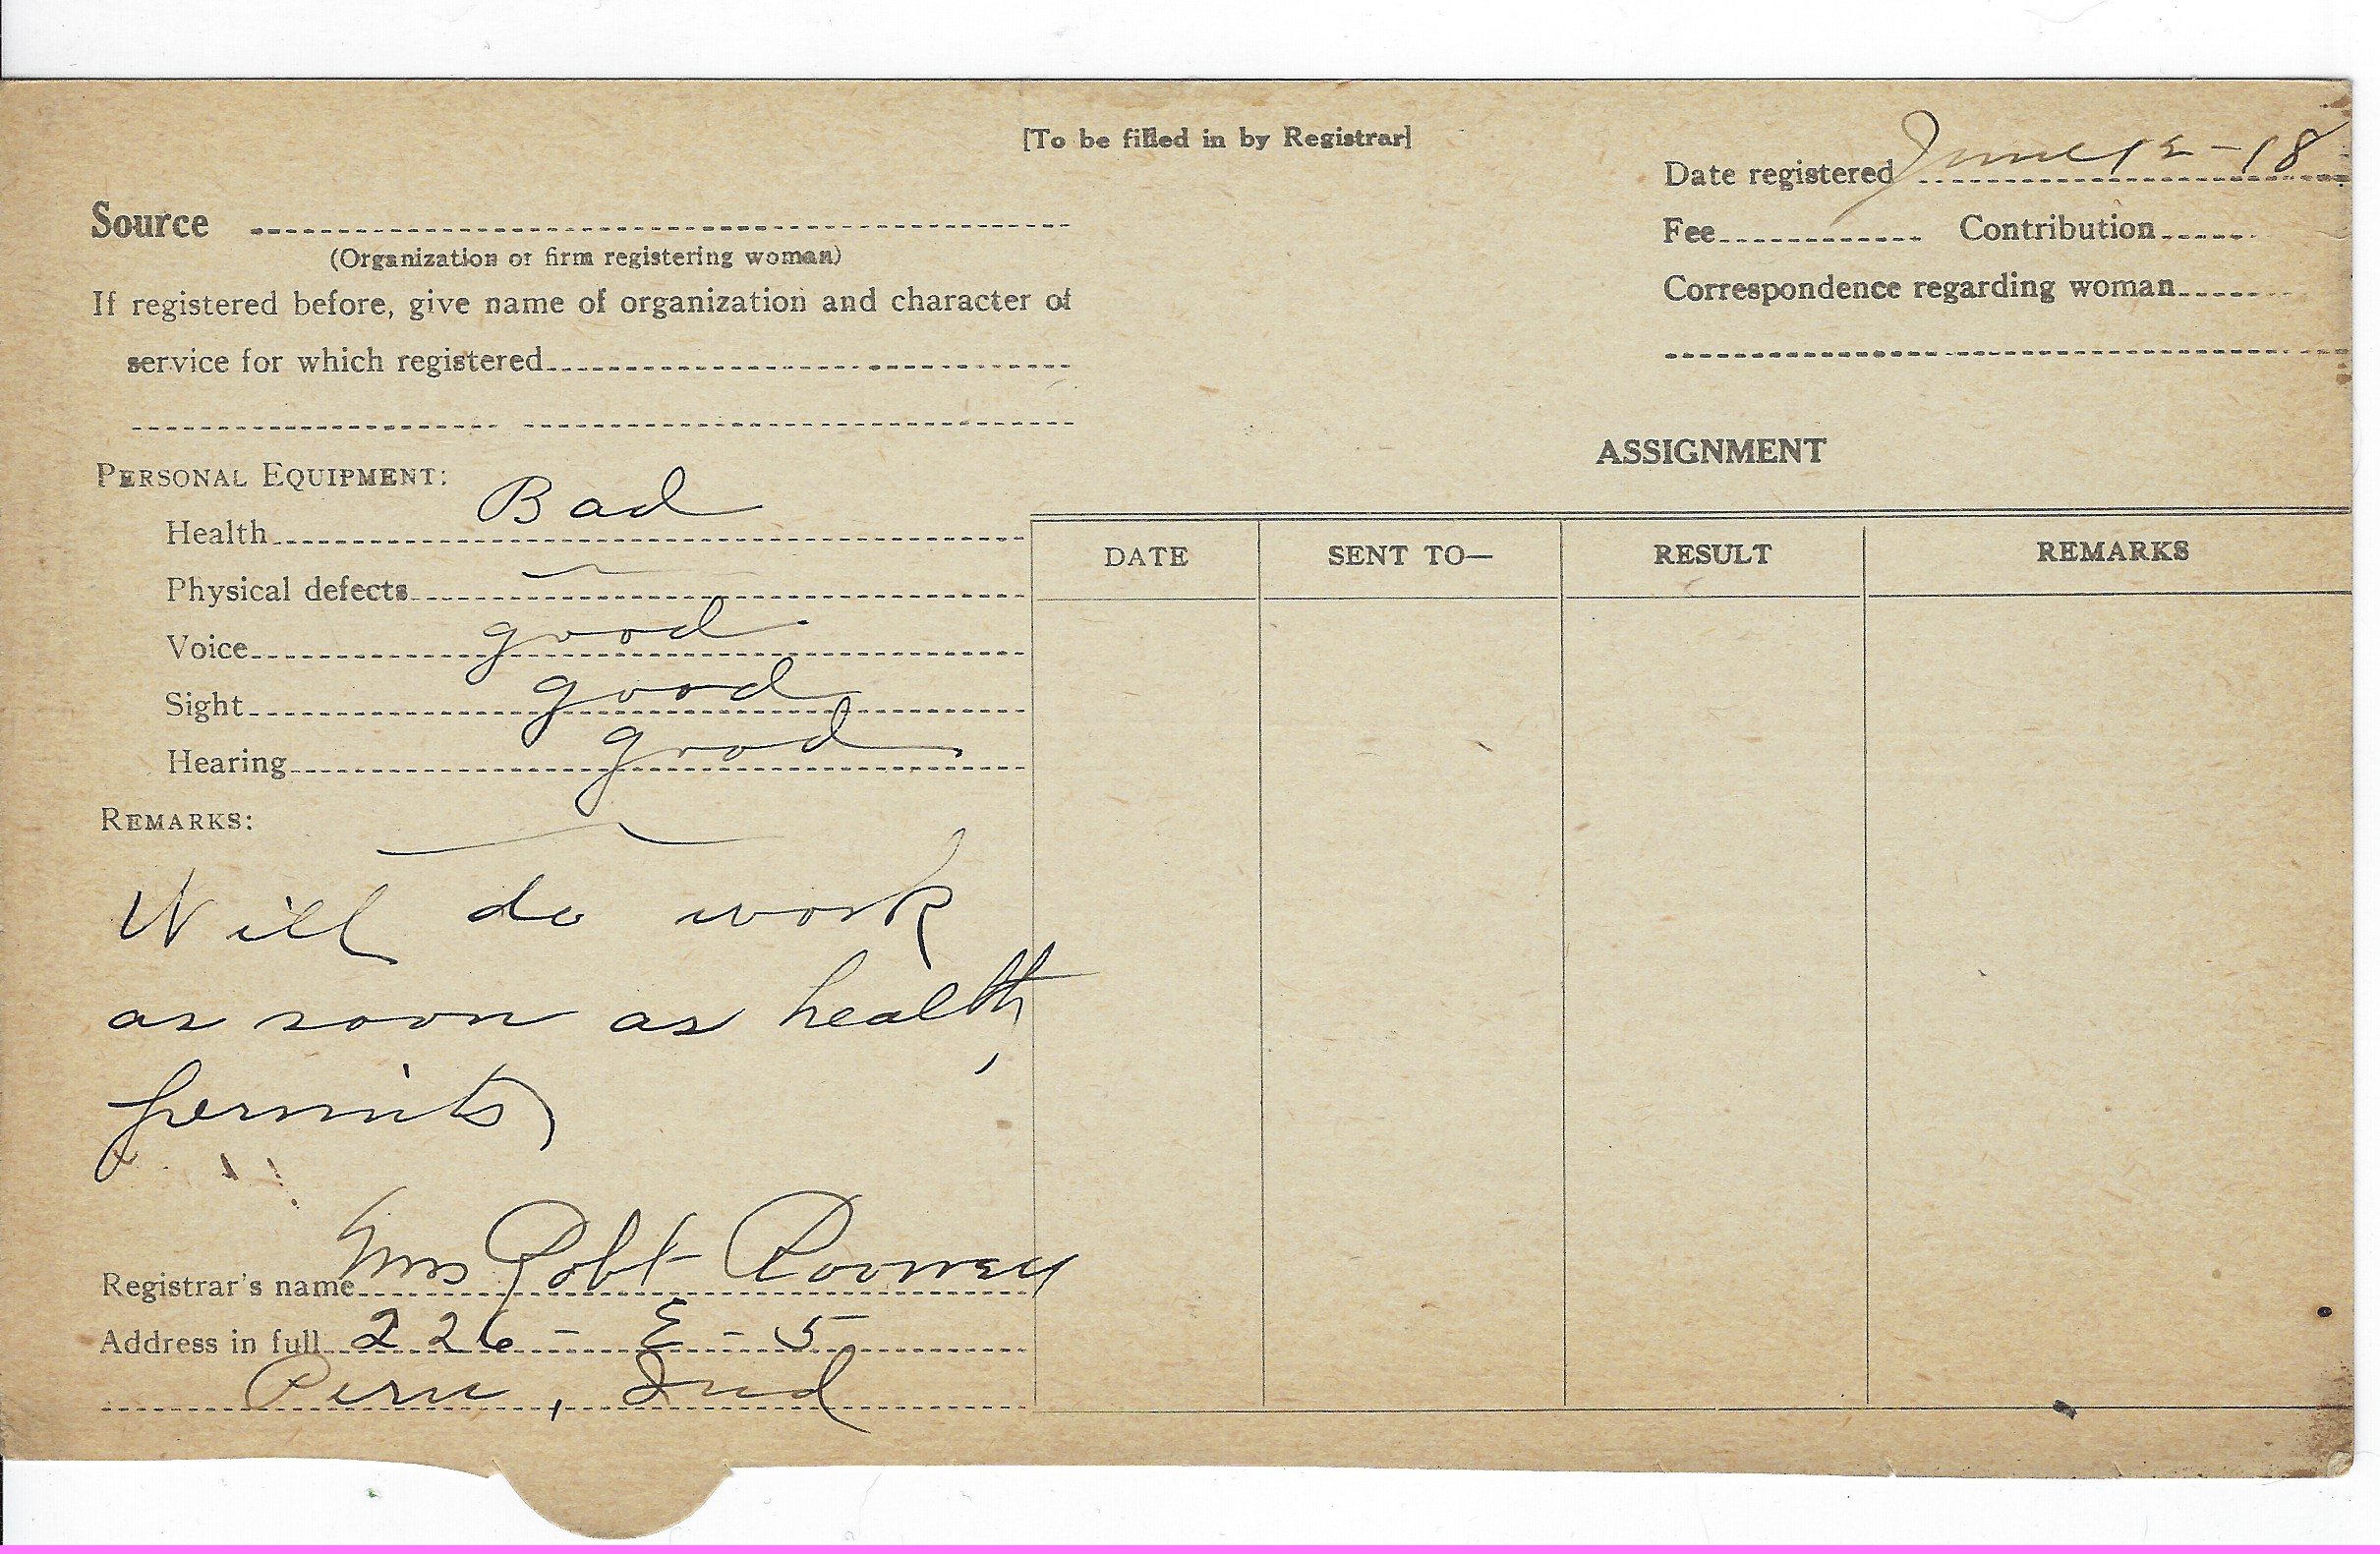 [To be filled in by Registrar]
Date registered June 12 - 18
Source
Fee Contribution
(Organization or firm registering woman)
Correspondence regarding woman
If registered before, give name of organization and character of
service for which registered
ASSIGNMENT
PERSONAL EQUIPMENT:
Health Bad
DATE SENT TO— RESULT REMARKS
Physical defects —
Voice good
Sight good
Hearing good
REMARKS: —
Will do work
as soon as health
permits
Registrar's name Mrs Robt Rooney
Address in full 226 - E - 5
Peru, Ind